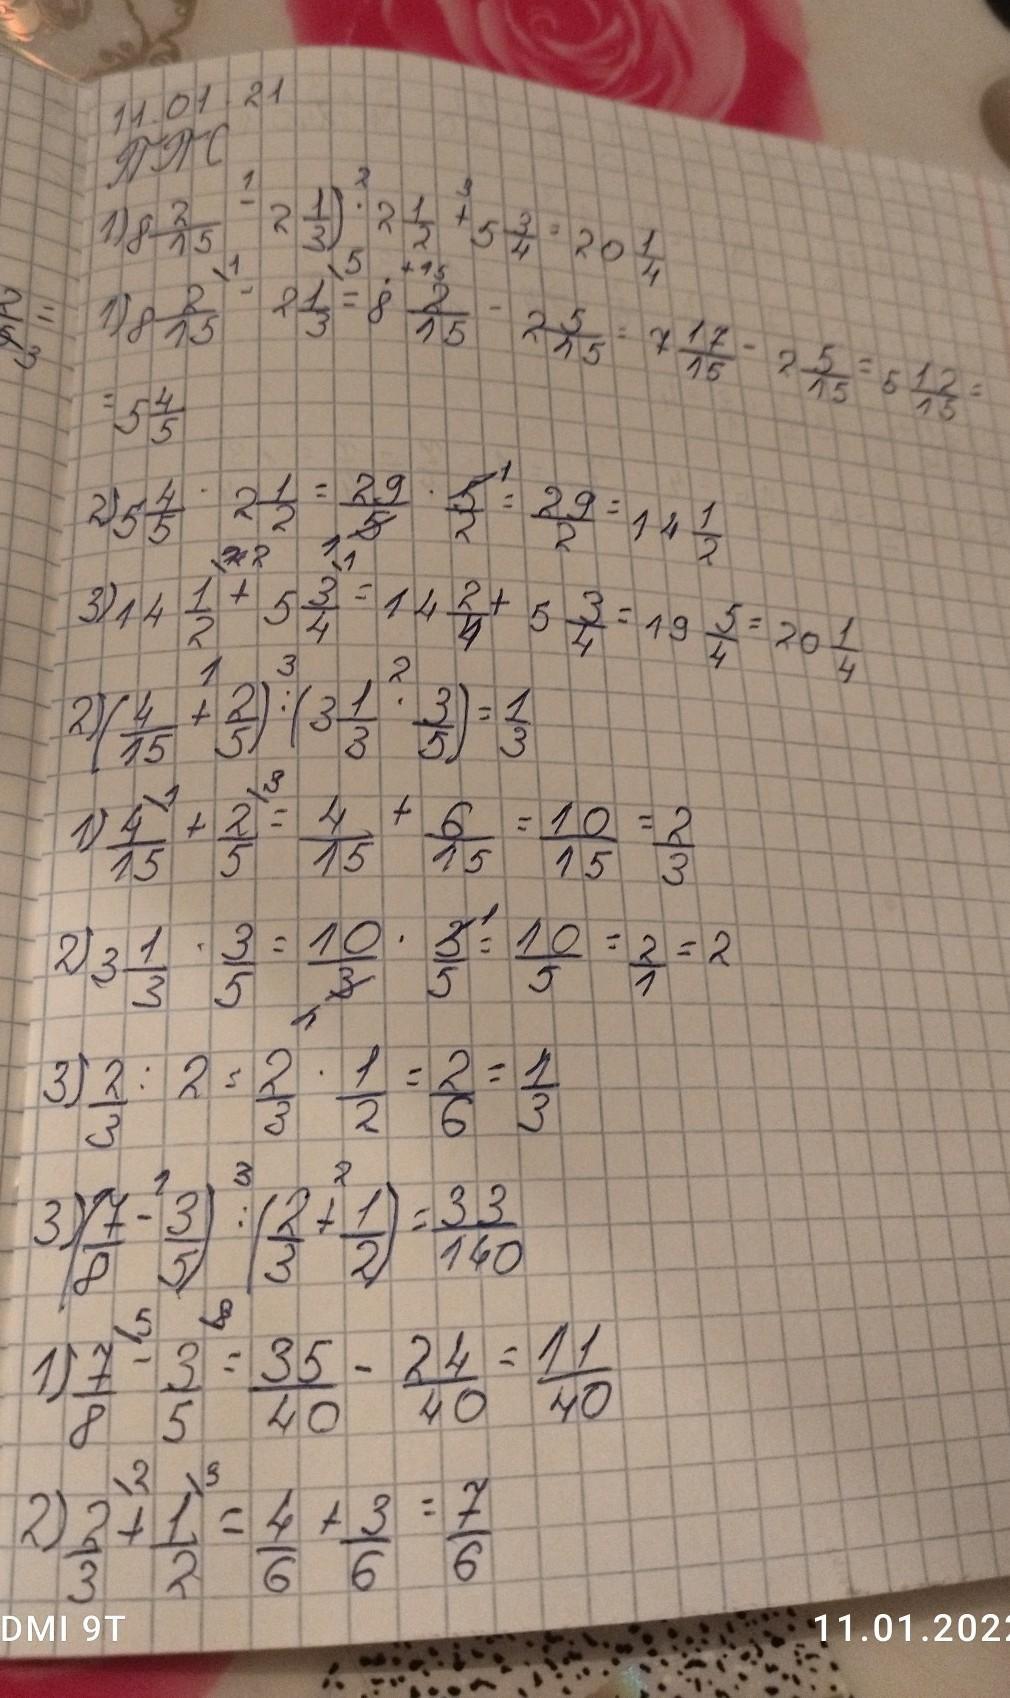 11.01.21
1) 8 2/15 - 2 1/3) · 2 1/2 + 5 3/4 = 20 1/4
1) 8 2/15 - 2 1/3 = 8 2/15 - 2 5/15 = 7 17/15 - 2 5/15 = 5 12/15 =
= 5 4/5
2) 5 4/5 · 2 1/2 = 29/5 · 5/2 = 29/2 = 14 1/2
3) 14 1/2 + 5 3/4 = 14 2/4 + 5 3/4 = 19 5/4 = 20 1/4
2) (4/15 + 2/5) : (3 1/3 · 3/5) = 1/3
1) 4/15 + 2/5 = 4/15 + 6/15 = 10/15 = 2/3
2) 3 1/3 · 3/5 = 10/3 · 3/5 = 10/5 = 2/1 = 2
3) 2/3 : 2 = 2/3 · 1/2 = 2/6 = 1/3
3) (7/8 - 3/5) : (2/3 + 1/2) = 33/140
1) 7/8 - 3/5 = 35/40 - 24/40 = 11/40
2) 2/3 + 1/2 = 4/6 + 3/6 = 7/6
DMI 9T
11.01.2022